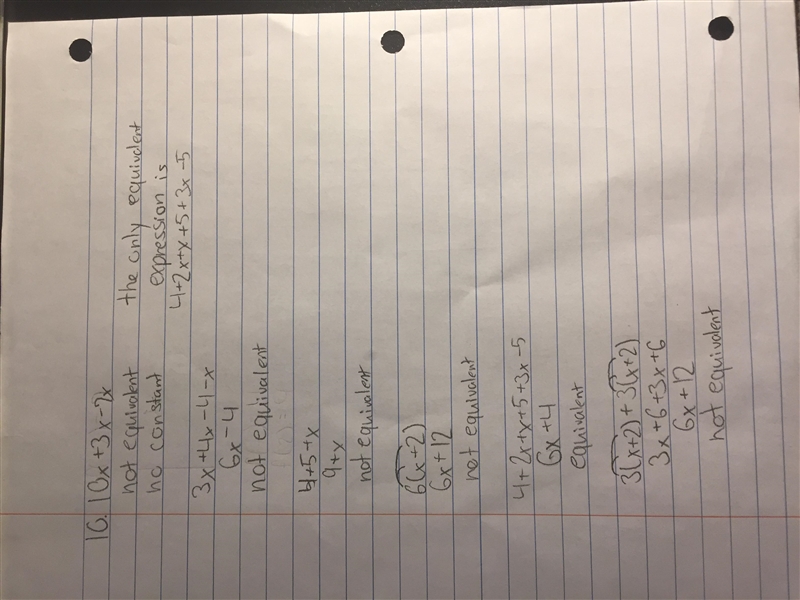 16. 10x+3x-7x
not equivalent
no constant
the only equivalent
expression is
4+2x+x+5+3x-5
3x+4x-4-x
6x-4
not equivalent
4+5+x
9+x
not equivalent
6(x+2)
6x+12
not equivalent
4+2x+x+5+3x-5
6x+4
equivalent
3(x+2)+3(x+2)
3x+6+3x+6
6x+12
not equivalent